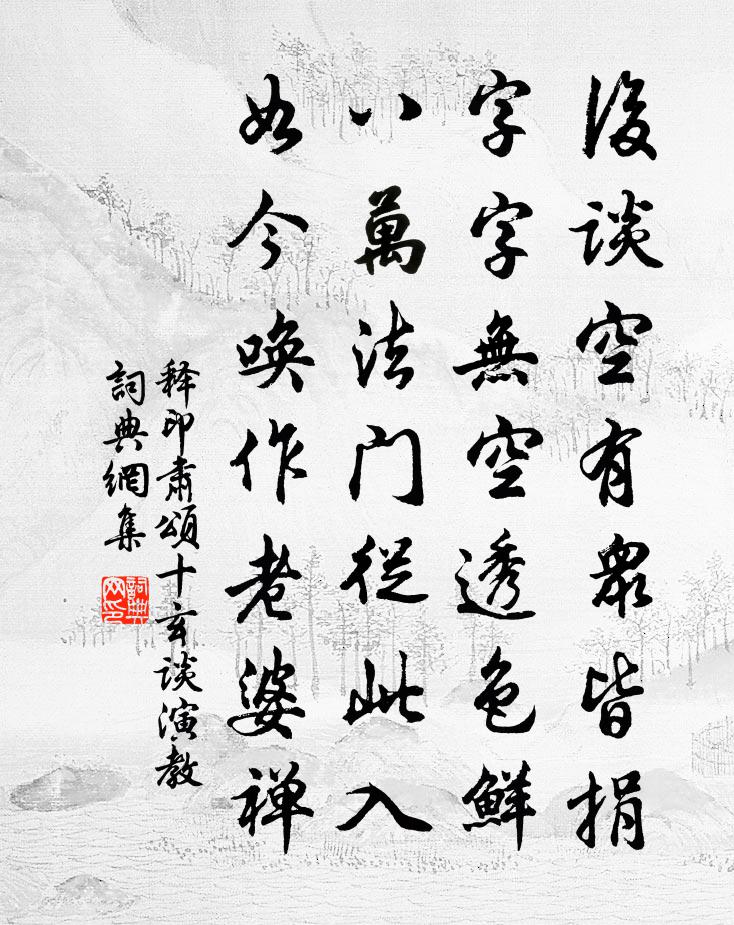 後談空有眾皆捐
字字無空透色鮮
八萬法門從此入
如今喚作老婆禅
释印肅頌十玄談演教
詞典網集
詞典网印